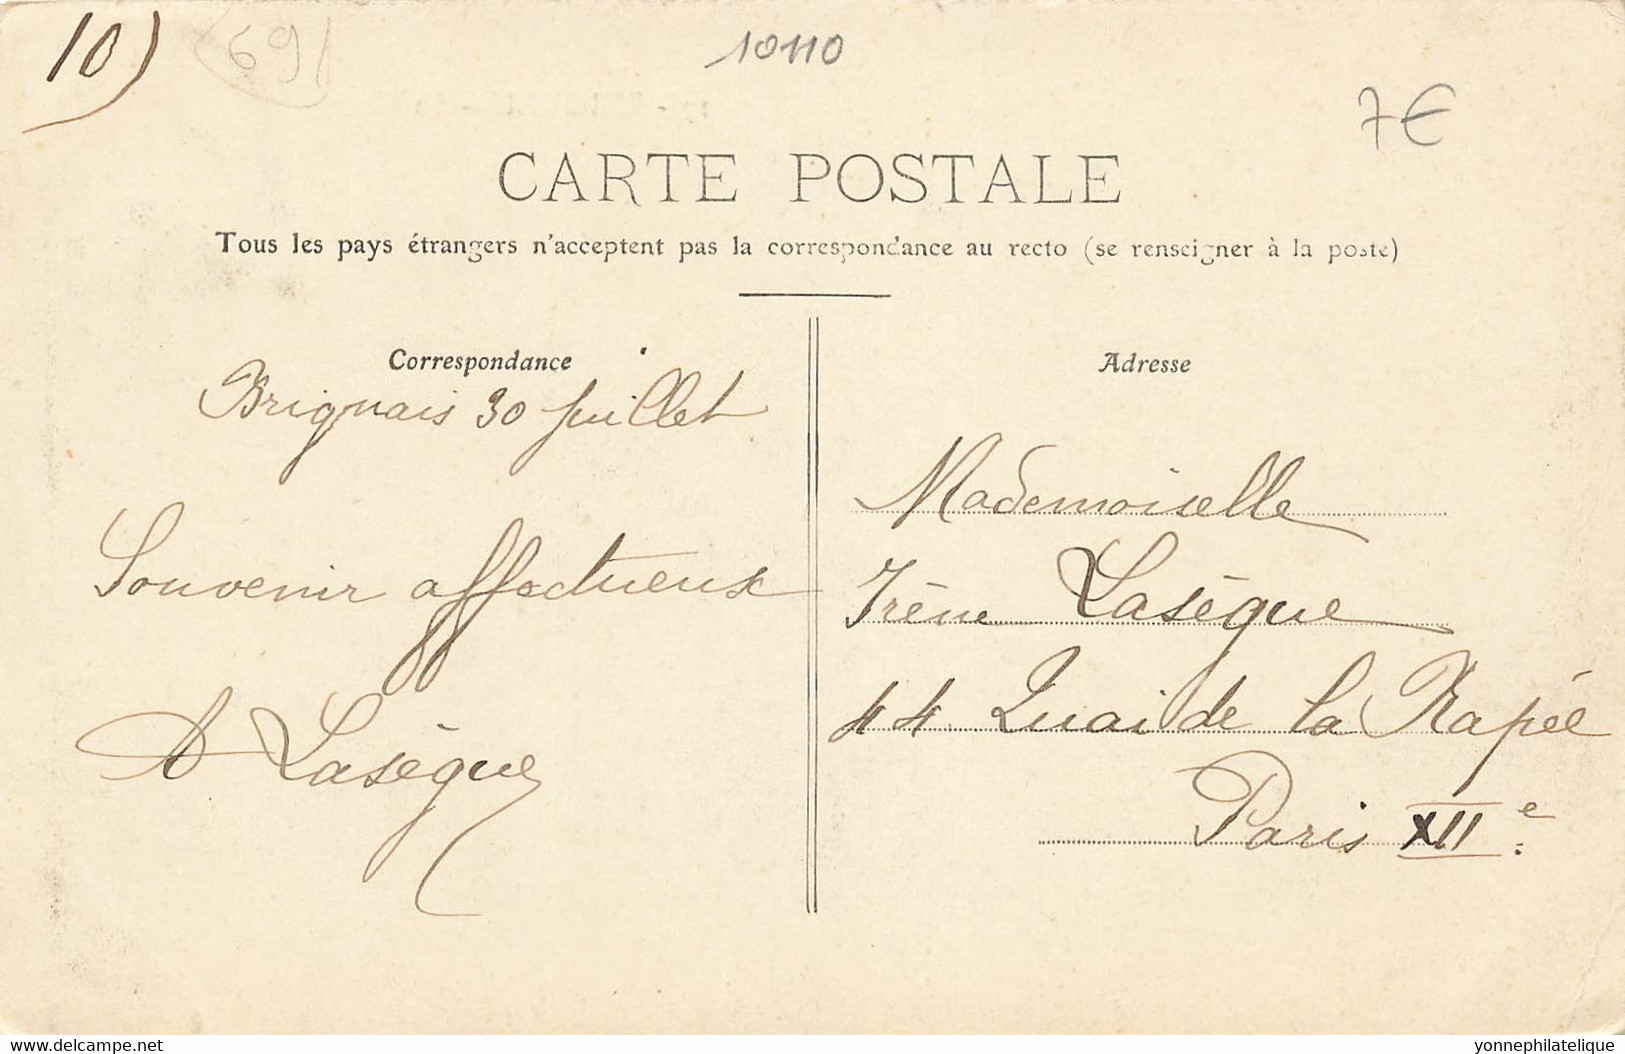 10)
69
10110
7€
CARTE POSTALE
Tous les pays étrangers n'acceptent pas la correspondance au recto (se renseigner à la poste)
Correspondance
Brignais 30 juillet
Souvenir affectueux
A Lasègue
Adresse
Mademoiselle
Irène Lasègue
44 Quai de la Rapée
Paris XII e
www.delcampe.net
yonnephilatelique